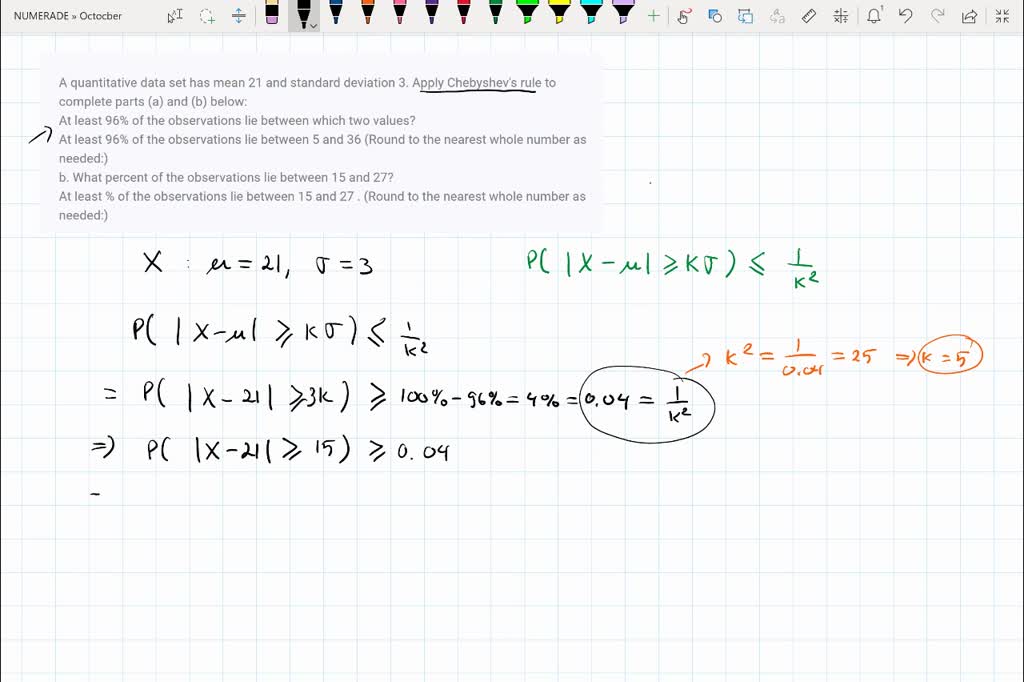 NUMERADE » Octocber
A quantitative data set has mean 21 and standard deviation 3. Apply Chebyshev's rule to
complete parts (a) and (b) below:
At least 96% of the observations lie between which two values?
At least 96% of the observations lie between 5 and 36 (Round to the nearest whole number as
needed:)
b. What percent of the observations lie between 15 and 27?
At least % of the observations lie between 15 and 27 . (Round to the nearest whole number as
needed:)
X : μ = 21, σ = 3
P( |X - μ| ≥ Kσ ) ≤ 1/K²
P( |X - μ| ≥ Kσ ) ≤ 1/K²
K² = 1/0.04 = 25 ⇒ K = 5
= P( |X - 21| ≥ 3K ) ≥ 100% - 96% = 4% = 0.04 = 1/K²
⇒) P( |X - 21| ≥ 15 ) ≥ 0.04
-